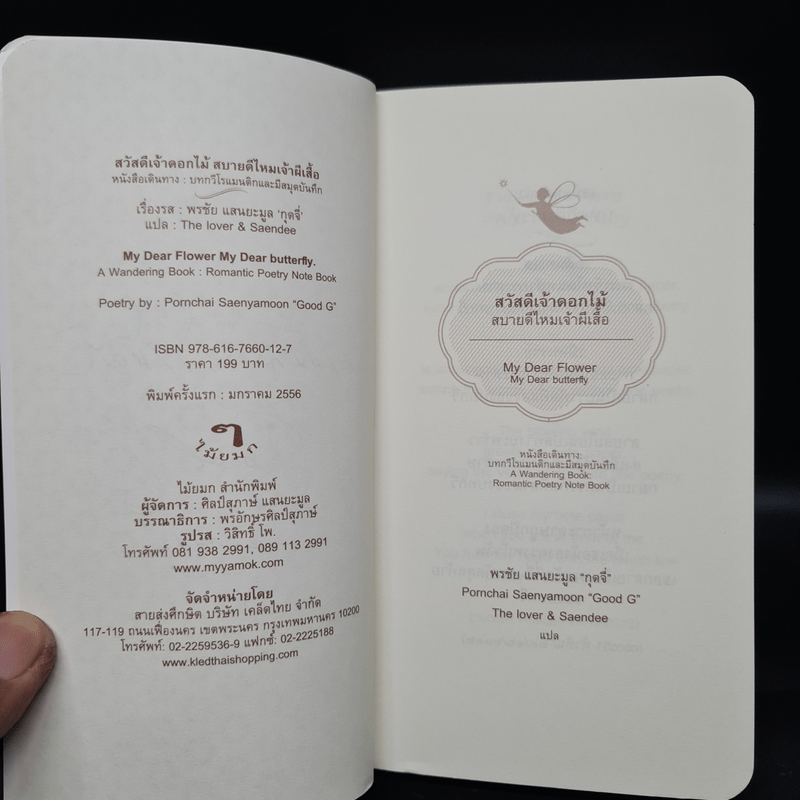 สวัสดีเจ้าดอกไม้ สบายดีไหมเจ้าผีเสื้อ
หนังสือเดินทาง : บทกวีโรแมนติกและมีสมุดบันทึก
เรื่องรส : พรชัย แสนยะมูล 'กุดจี่'
แปล : The lover & Saendee
My Dear Flower My Dear butterfly.
A Wandering Book : Romantic Poetry Note Book
Poetry by : Pornchai Saenyamoon "Good G"
ISBN 978-616-7660-12-7
ราคา 199 บาท
พิมพ์ครั้งแรก : มกราคม 2556
ๆ
ไม้ยมก
ไม้ยมก สำนักพิมพ์
ผู้จัดการ : ศิลป์สุภาษ์ แสนยะมูล
บรรณาธิการ : พรอักษรศิลป์สุภาษ์
รูปรส : วิสิทธิ์ โพ.
โทรศัพท์ 081 938 2991, 089 113 2991
www.myyamok.com
จัดจำหน่ายโดย
สายส่งศึกษิต บริษัท เคล็ดไทย จำกัด
117-119 ถนนเฟื่องนคร เขตพระนคร กรุงเทพมหานคร 10200
โทรศัพท์: 02-2259536-9 แฟกซ์: 02-2225188
www.kledthaishopping.com
สวัสดีเจ้าดอกไม้
สบายดีไหมเจ้าผีเสื้อ
My Dear Flower
My Dear butterfly
หนังสือเดินทาง:
บทกวีโรแมนติกและมีสมุดบันทึก
A Wandering Book:
Romantic Poetry Note Book
พรชัย แสนยะมูล "กุดจี่"
Pornchai Saenyamoon "Good G"
The lover & Saendee
แปล